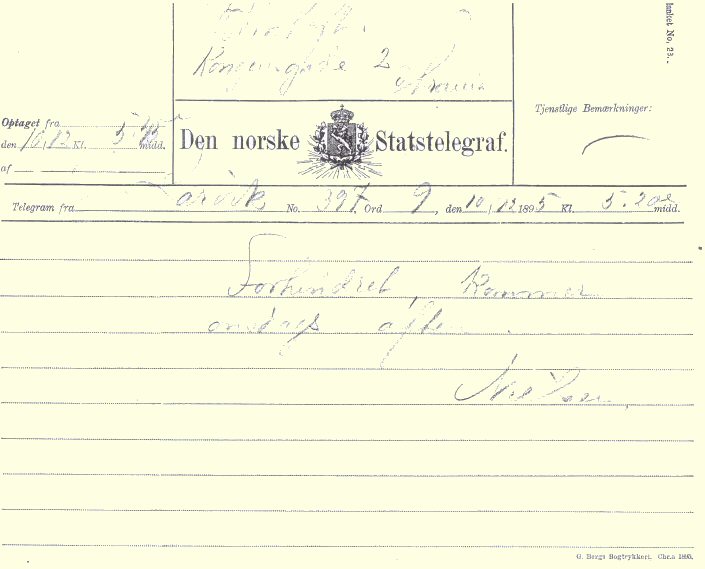 Kongensgade 2
lanket No. 23.
Tjenstlige Bemærkninger:
Optaget fra
den 10/12 Kl. 5.45 midd.
af
Den norske Statstelegraf.
Telegram fra Larvik No. 397. Ord 9, den 10/12 1895 Kl. 5.20 midd.
Forhindret, Kommer
onsdags aften.
Nielsen.
G. Bergs Bogtrykkeri. Chr.a 1895.